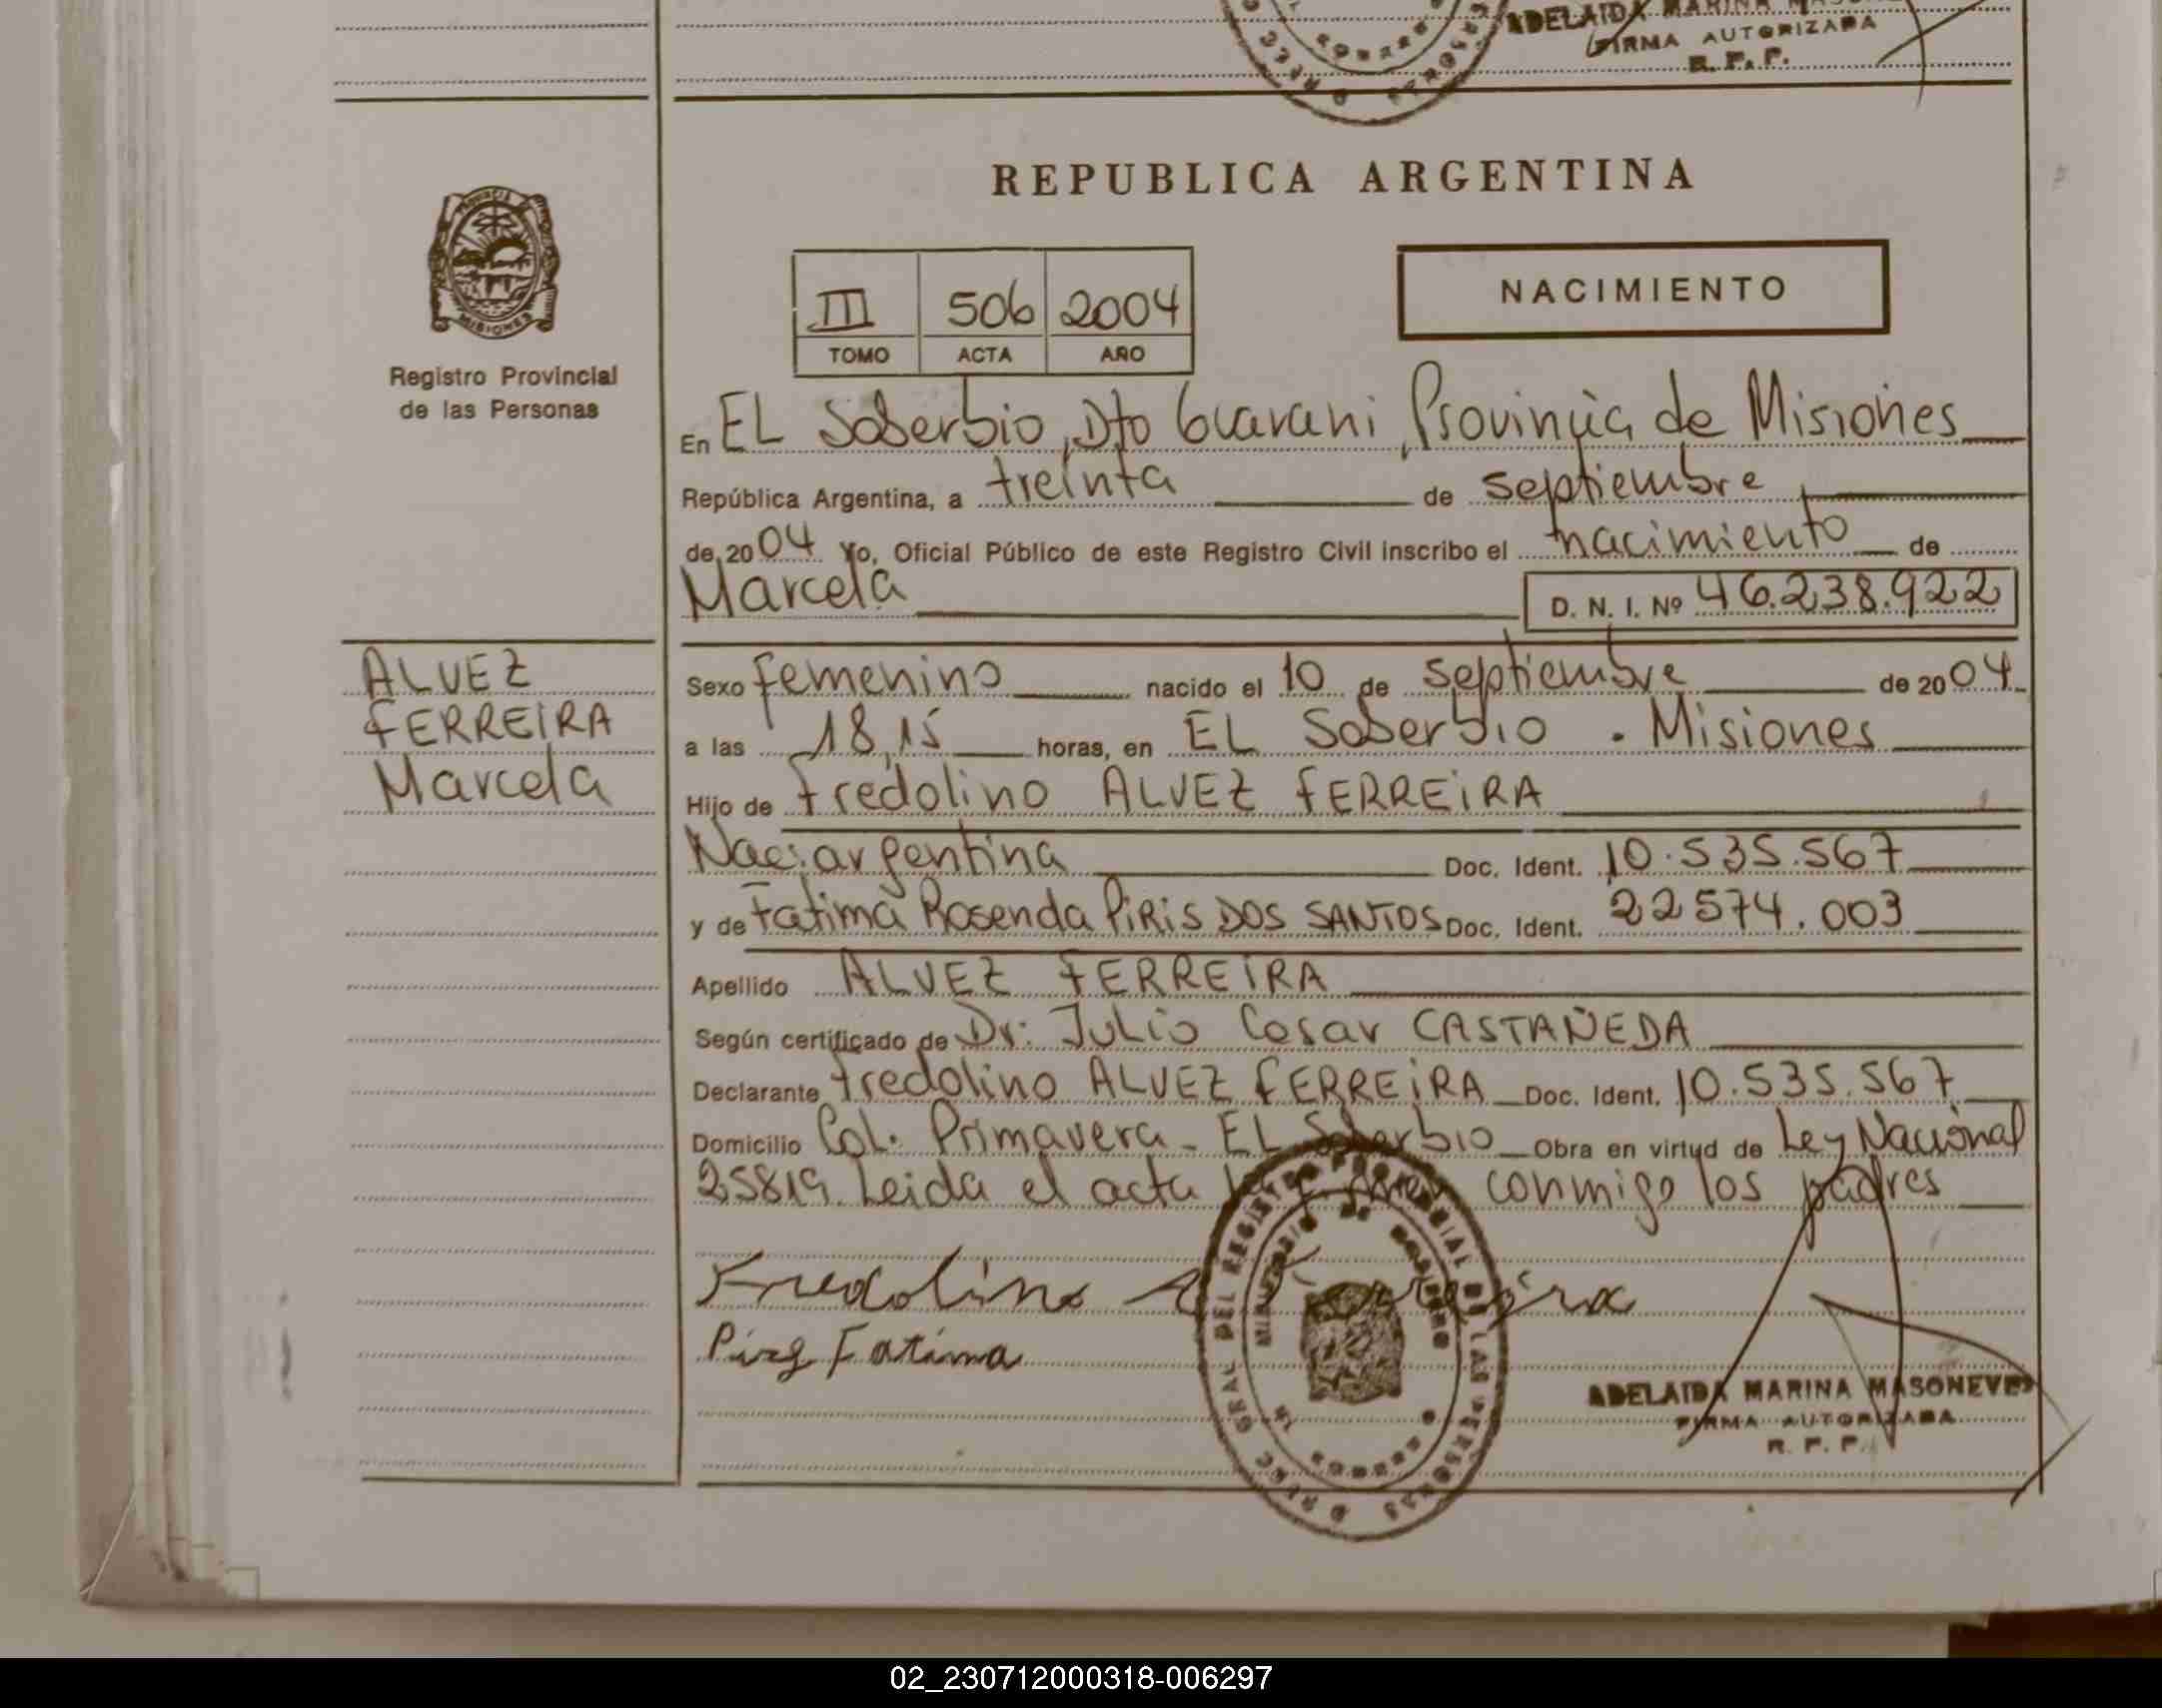 ADELAIDA MARINA
FIRMA AUTORIZADA
R. P. P.
REPUBLICA ARGENTINA
PROVINCIA DE
MISIONES
Registro Provincial
de las Personas
III 506 2004
TOMO ACTA AÑO
NACIMIENTO
En EL Soberbio, Dto Guarani, Provincia de Misiones
República Argentina, a treinta de septiembre
de 2004 Yo, Oficial Público de este Registro Civil inscribo el nacimiento de
Marcela D. N. I. Nº 46.238.922
ALVEZ
FERREIRA
Marcela
Sexo femenino nacido el 10 de septiembre de 2004
a las 18,15 horas, en EL Soberbio . Misiones
Hijo de Fredolino ALVEZ FERREIRA
Nac: argentina Doc. Ident. 10.535.567
y de Fatima Rosenda PIRIS DOS SANTOS Doc. Ident. 22574.003
Apellido ALVEZ FERREIRA
Según certificado de Dr: Julio Cesar CASTAÑEDA
Declarante Fredolino ALVEZ FERREIRA Doc. Ident. 10.535.567
Domicilio Col. Primavera - EL Soberbio Obra en virtud de Ley Nacional
25819. Leida el acta la firman conmigo los padres
Fredolino
Fatima
DIREC GRAL DEL REGISTRO PROVINCIAL DE LAS PERSONAS
MINISTERIO DE GOBIERNO
ADELAIDA MARINA MASONEVES
FIRMA AUTORIZADA
R. P. P.
02_230712000318-006297